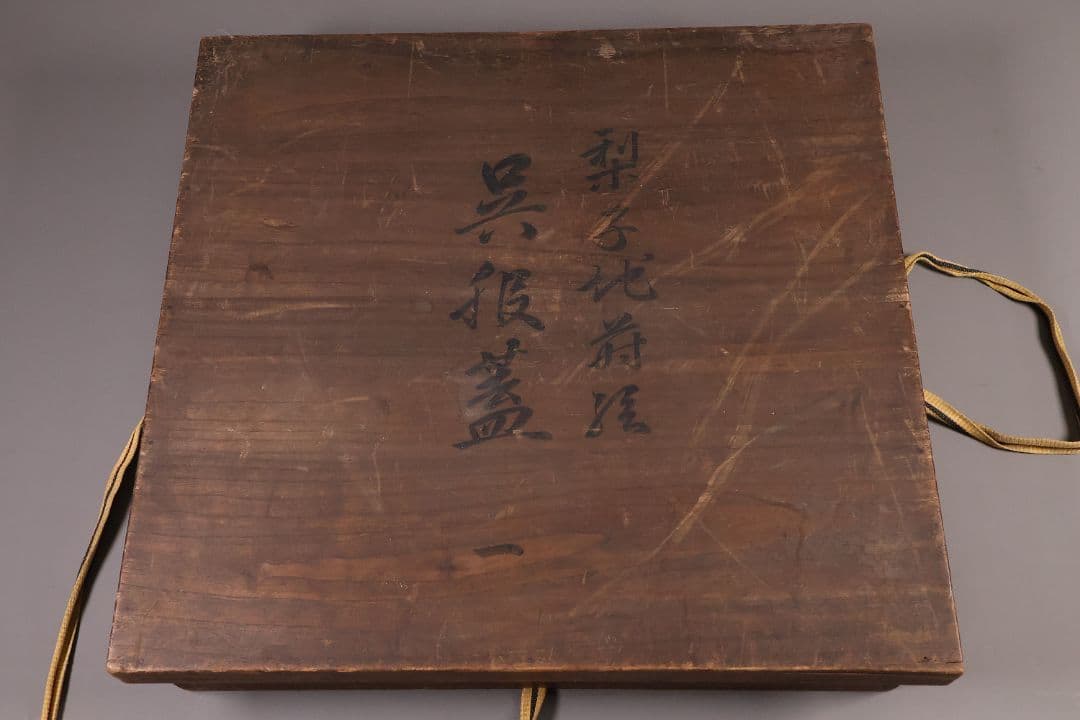 梨子地蒔絵
呉服蓋 一